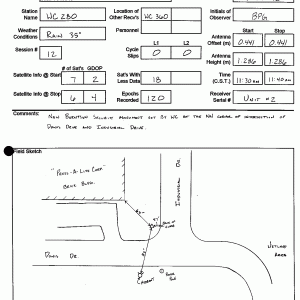 Station Name WC 280
Location of Other Recv's WC 360
Initials of Observer
Start Stop
Weather Conditions RAIN 35°
Personnel
Antenna Offset (m) 0.441 0.441
L1 L2
Session # 12
Cycle Slips 0 0
Antenna Height (m) 1.286 1.286
# of Sat's GDOP
Start Stop
Satellite Info @ Start 7 2
Sat's With Less Data 18
Time (C.S.T.) 11:10 AM 11:30 AM
Satellite Info @ Stop 6 4
Epochs Recorded 120
Receiver Serial # UNIT #2
Comments: NEW BERNTSEN MONUMENT SET BY WC AT THE NW CORNER OF INTERSECTION OF
DAVIS DRIVE AND INDUSTRIAL DRIVE.
Field Sketch
"PENTS-A-LIVE CORP"
BRICK BLDG.
INDUSTRIAL DR.
DAVIS DR.
WETLAND
AREA